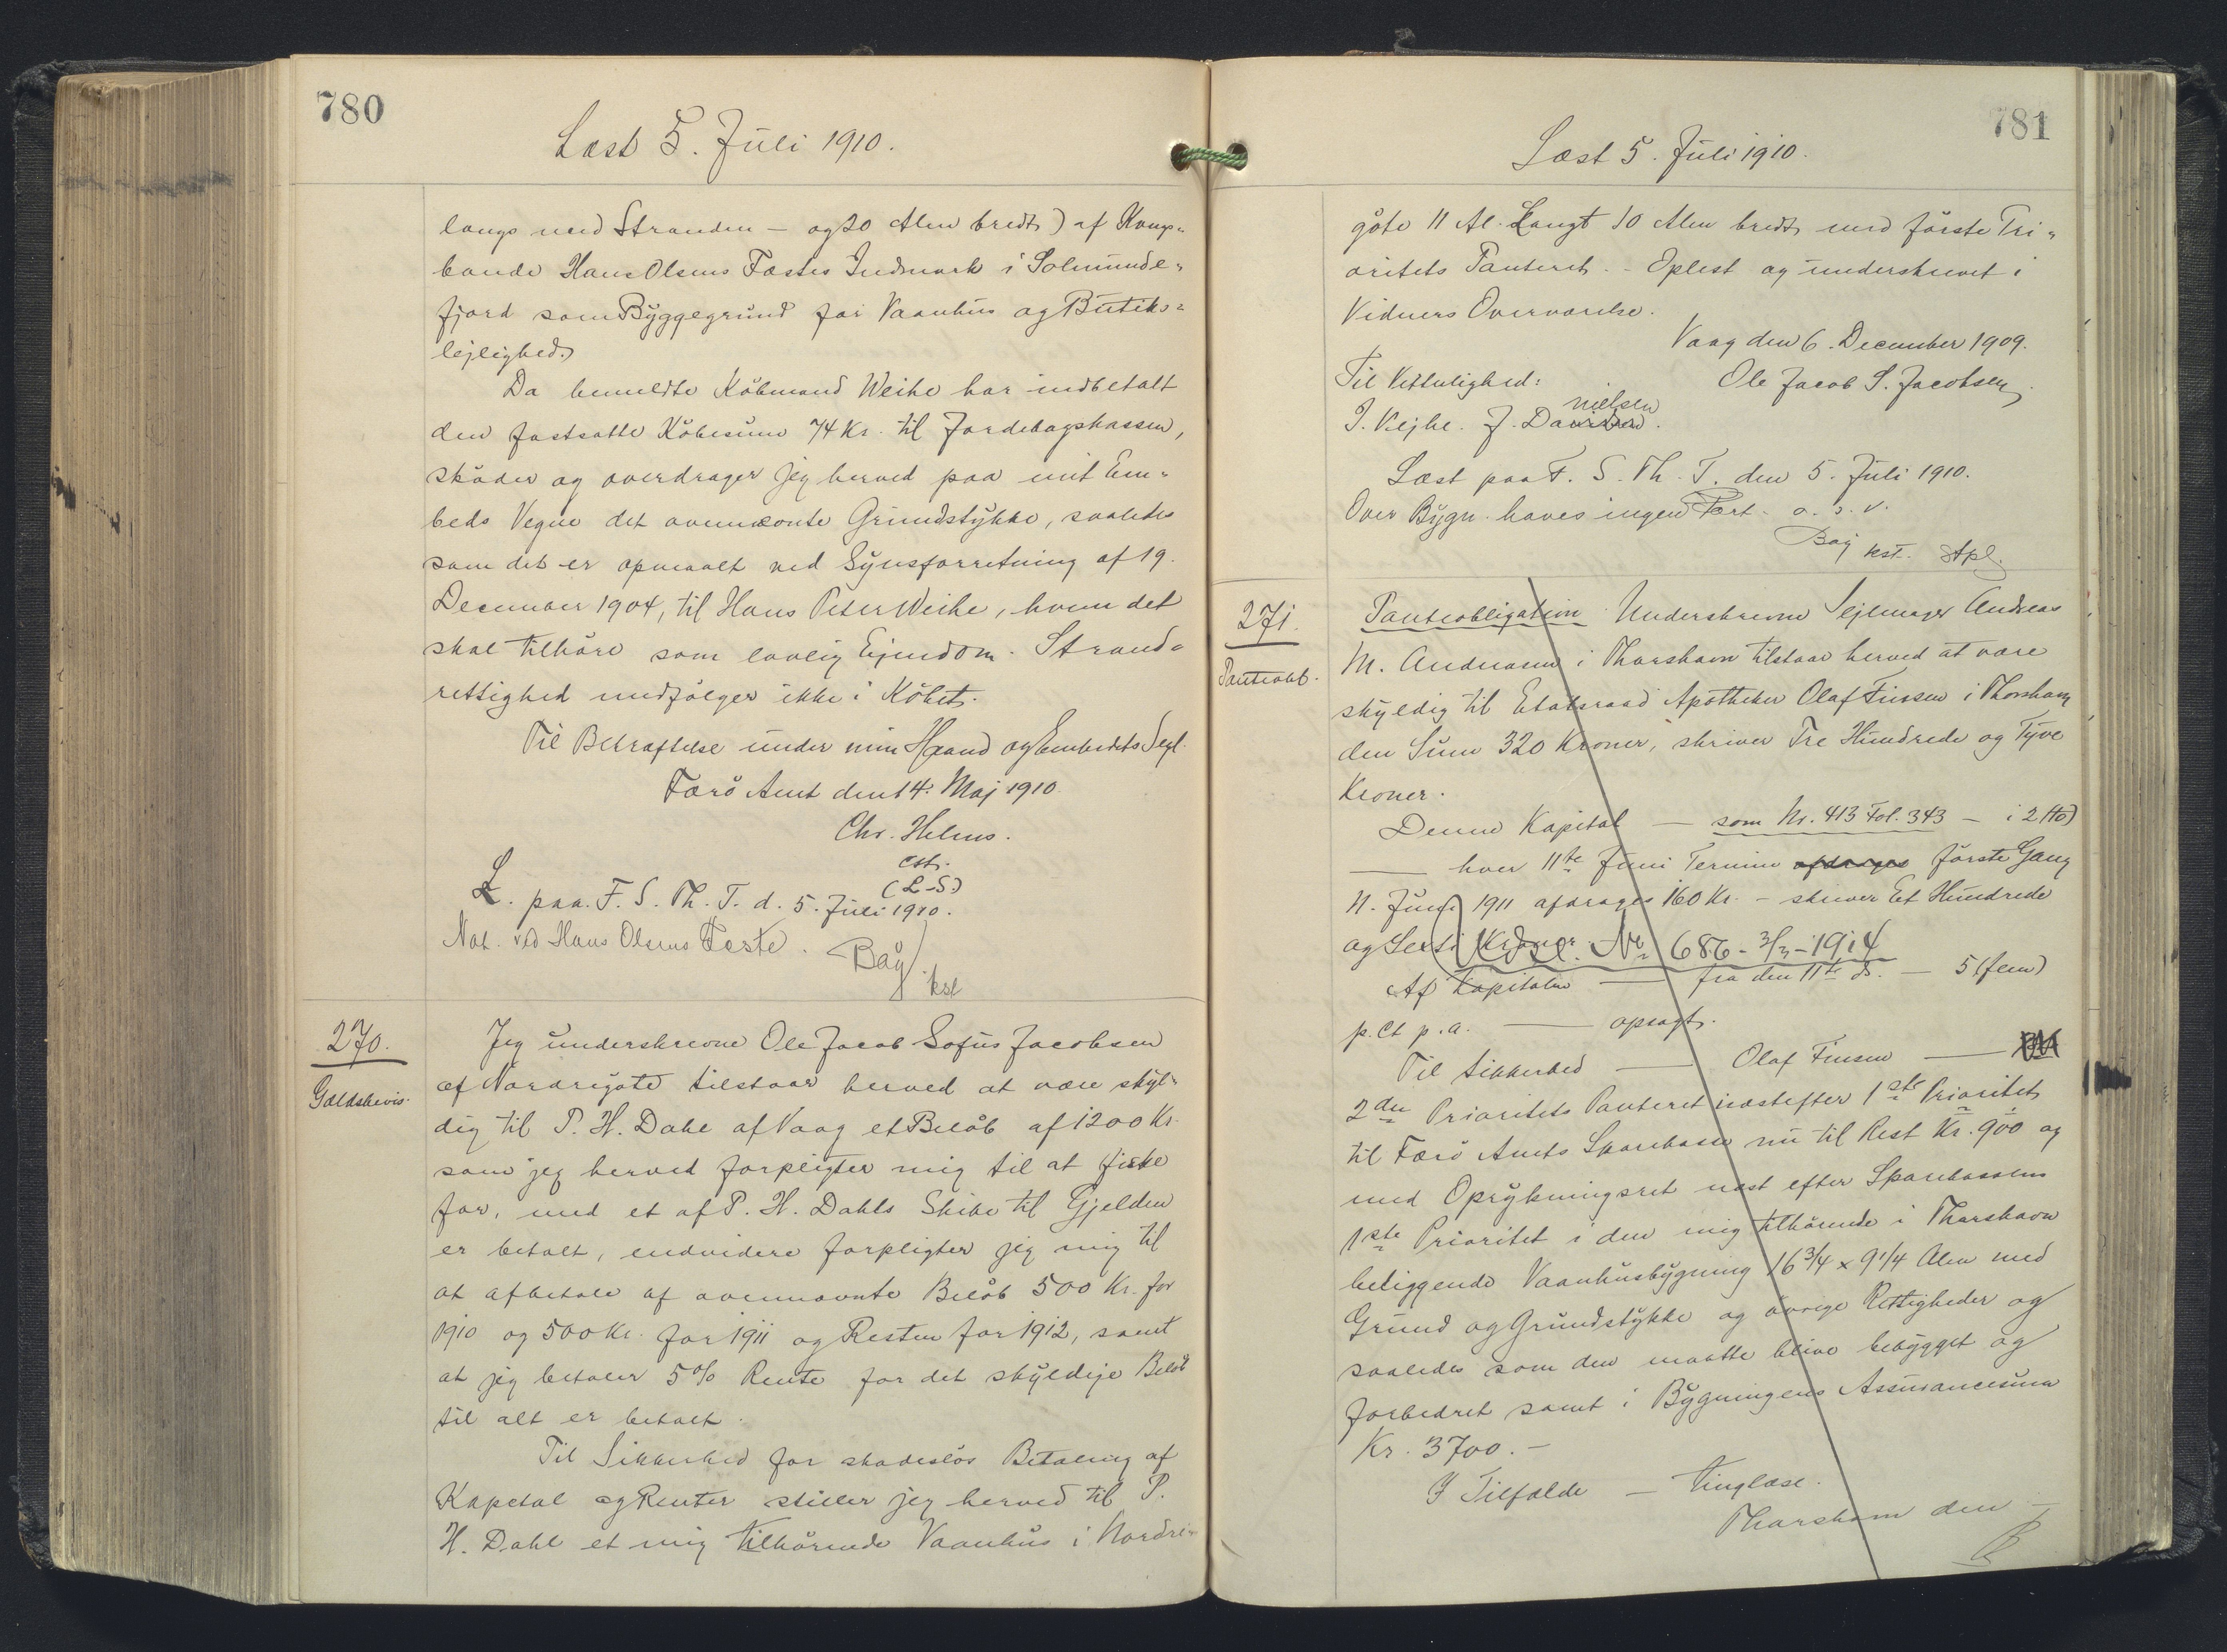 780
Læst 5. Juli 1910.
langs med Stranden – og 20 Alen bredt) af Kongs-
bonde Hans Olsens Fæstes Indmark i Solmunde-
fjord som Byggegrund for Vaanhus og Butiks-
lejlighed.
Da bemeldte Köbmand Weihe har indbetalt
den fastsatte Köbesum 74 Kr. til Jordebogskassen,
sköder og overdrager jeg herved paa mit Em-
beds Vegne det ovennævnte Grundstykke, saaledes
som det er opmaalt ved Synsforretning af 19.
December 1904, til Hans Peter Weihe, hvem det
skal tilhöre som lovlig Ejendom. Strand-
rettighed medfölger ikke i Köbet.
Til Bekræftelse under min Haand og Embedets Segl.
Færö Amt den 14. Maj 1910.
Chr. Helms.
cst.
(L.S.)
L. paa. F. S. Th. T. d. 5. Juli 1910.
Not. ved Hans Olsens Fæste.
Bay
kst
270.
Gældsbevis.
Jeg underskrevne Ole Jacob Sofus Jacobsen
af Nordrigöte tilstaar herved at være skyl-
dig til P. H. Dahl af Vaag et Belöb af 1200 Kr.
som jeg herved forpligter mig til at fiske
for, med et af P. H. Dahls Skibe til Gjelden
er betalt, endvidere forpligter jeg mig til
at afbetale af ovennævnte Belöb 500 Kr. for
1910 og 500 Kr. for 1911 og Resten for 1912, samt
at jeg betaler 5% Rente for det skyldige Belöb
til alt er betalt.
Til Sikkerhed for skadeslös Betaling af
Kapital og Renter stiller jeg herved til P.
H. Dahl et mig tilhörende Vaanhus i Nordri-
781
Læst 5. Juli 1910.
göte 11 Al. Langt 10 Alen bredt med förste Pri-
oritets Panteret. – Oplest og underskrevet i
Vidners Overværelse.
Vaag den 6. December 1909.
Til Vitterlighed:
Ole Jacob S. Jacobsen.
nielsen
J. Vejhe. J. Da
Læst paa F. S. Th. T. den 5. Juli 1910.
Over Bygn. haves ingen Part. o. s. v.
Bay kst. Stpl.
271.
Panteobl.
Panteobligation Underskrevne Sejlmager Andreas
M. Andreasen i Thorshavn tilstaar herved at være
skyldig til Etatsraad Apotheker Olaf Finsen i Thorshavn
den Sum 320 Kroner, skriver Tre Hundrede og Tyve
Kroner.
Denne Kapital — som Nr. 413 Fol. 343 – i 2 (to)
— hver 11te Juni Termin afdrages förste Gang
11. Juni 1911 afdrages 160 Kr. – skriver Et Hundrede
og Sexti Kroner.
Udsl. No 686 - 3/3 - 1914
Af Kapitalen — fra den 11te ds. — 5 (fem)
p. Ct p. a. — opsagt.
Til Sikkerhed — Olaf Finsen —
2den Prioritets Panteret næstefter 1ste Prioritet
til Færö Amts Sparekasse nu til Rest Kr. 900 og
med Oprykningsret næst efter Sparekassens
1ste Prioritet i den mig tilhörende i Thorshavn
beliggende Vaanhusbygning 16 3/4 x 9 1/4 Alen med
Grund og Grundstykke og övrige Rettigheder og
saaledes som den maatte blive bebygget og
forbedret samt i Bygningens Assurancesum
Kr. 3700.–
I Tilfælde — tinglæse.
Thorshavn den —